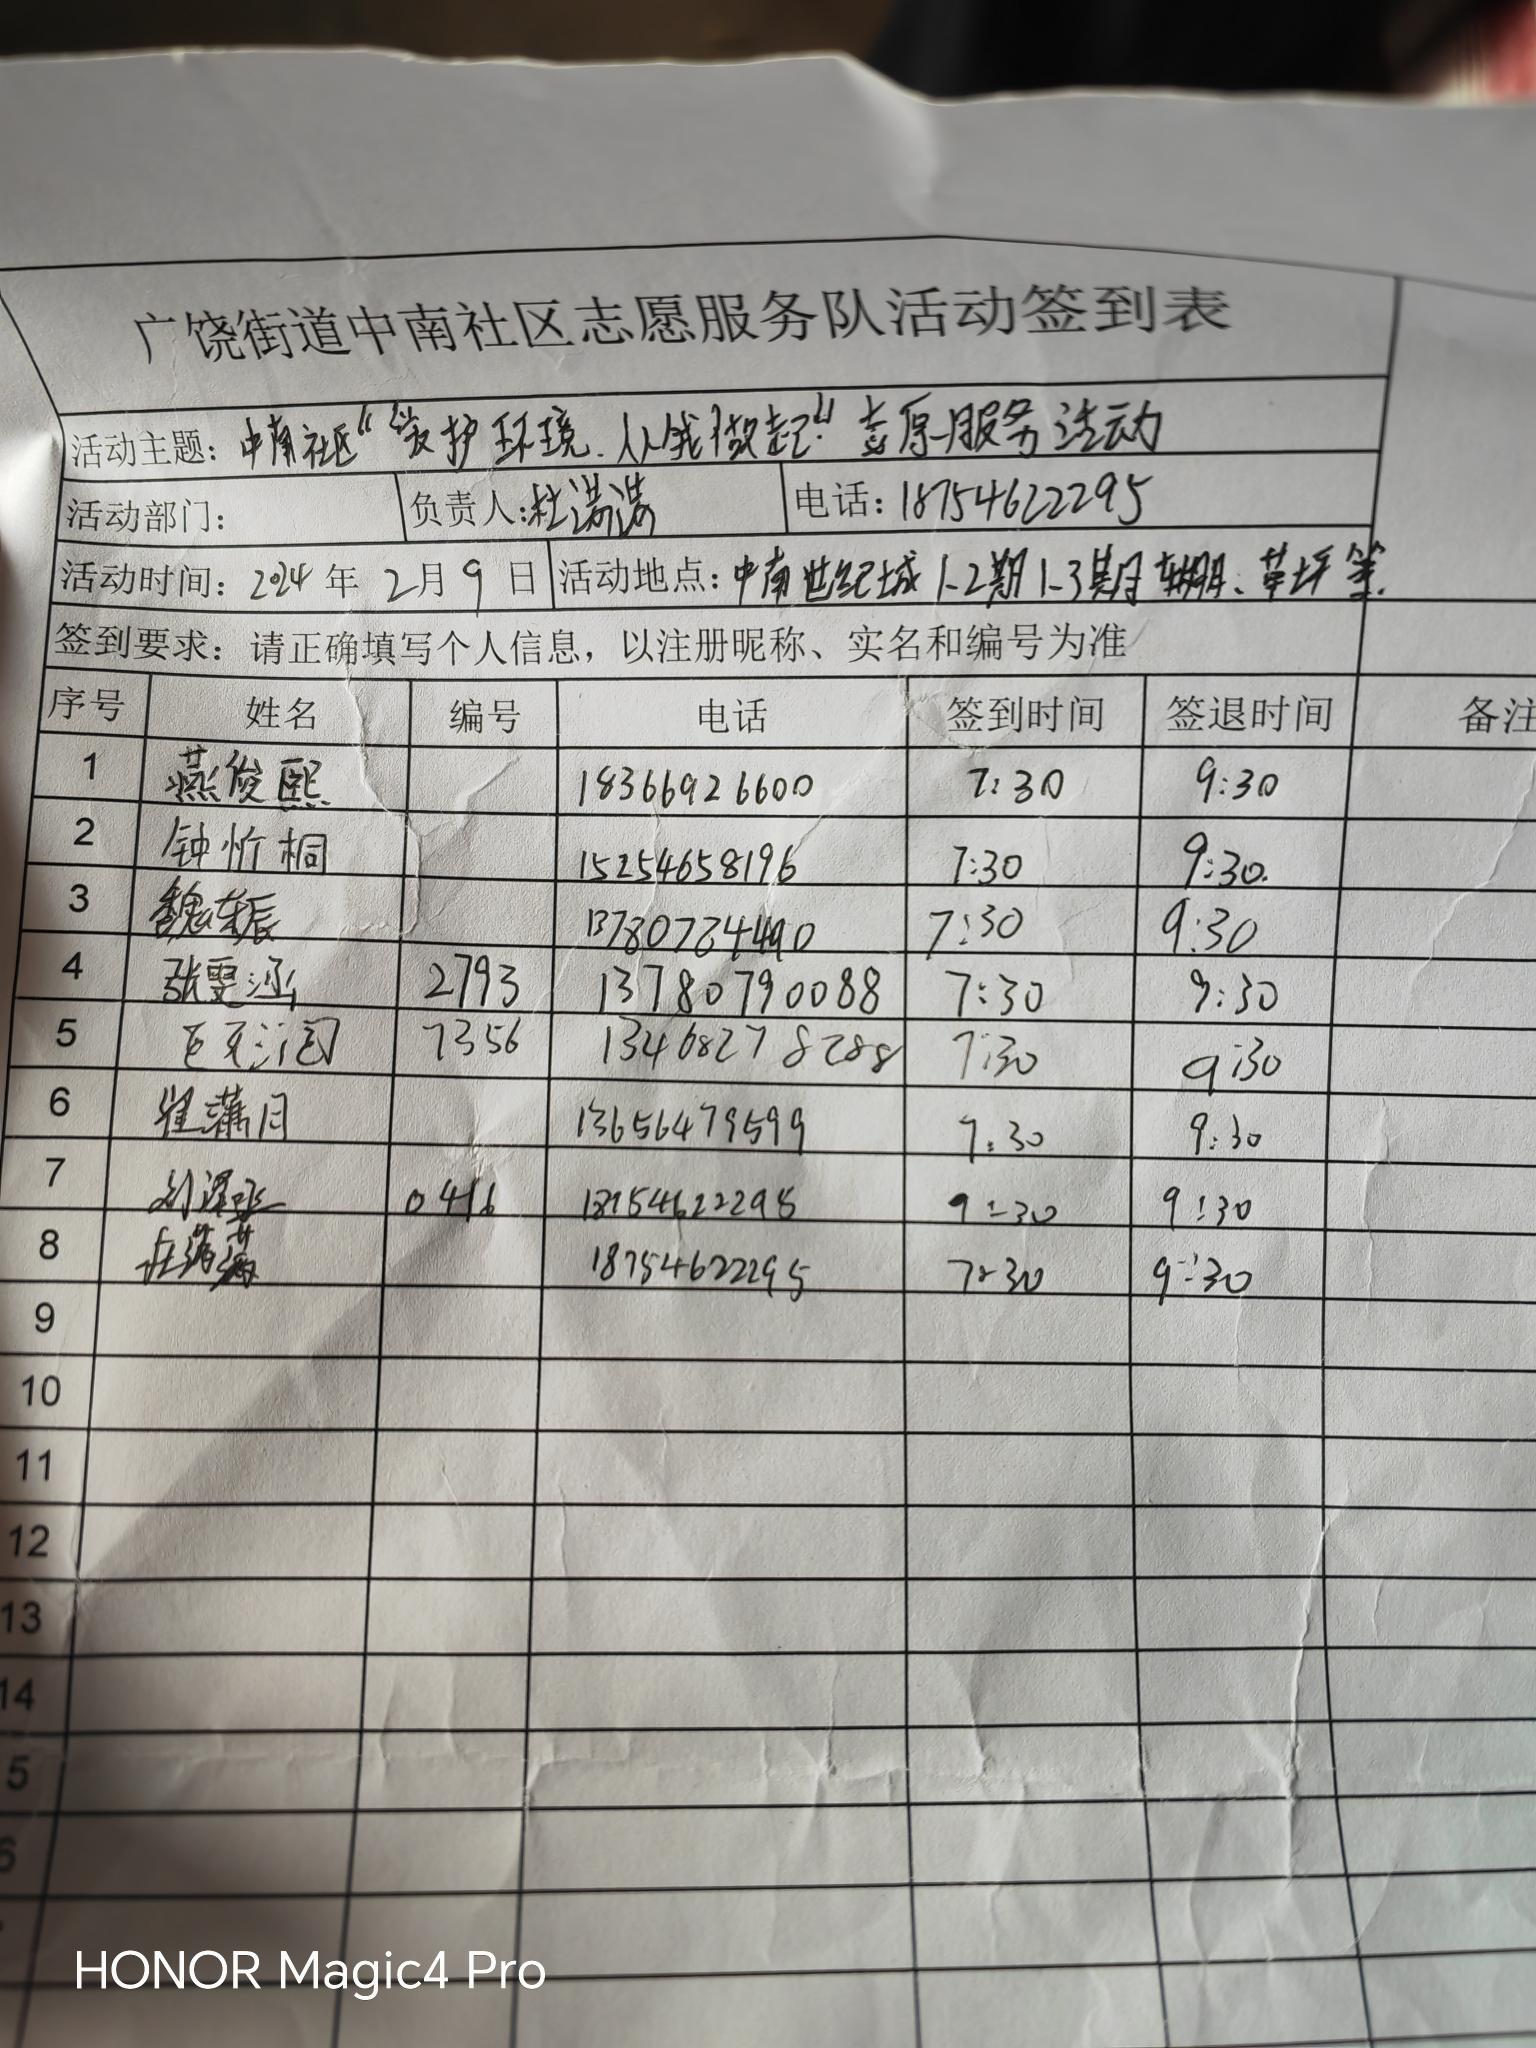 广饶街道中南社区志愿服务队活动签到表
活动主题：中南社区“爱护环境.从我做起！”志愿服务活动
活动部门： 负责人：杜满满 电话：18754622295
活动时间：2024年2月9日 活动地点：中南世纪城1-2期1-3期车棚、草坪等.
签到要求：请正确填写个人信息，以注册昵称、实名和编号为准
序号 姓名 编号 电话 签到时间 签退时间 备注
1 燕俊熙 18366926600 7:30 9:30
2 钟忻桐 15254658196 7:30 9:30.
3 魏东辰 13780724490 7:30 9:30
4 张雯涵 2793 13780790088 7:30 9:30
5 7356 13468278288 7:30 9:30
6 崔满月 13656479599 7:30 9:30
7 刘泽 0416 18754622295 9:30 9:30
8 杜满满 18754622295 7:30 9:30
9
10
11
12
13
14
5
6
HONOR Magic4 Pro